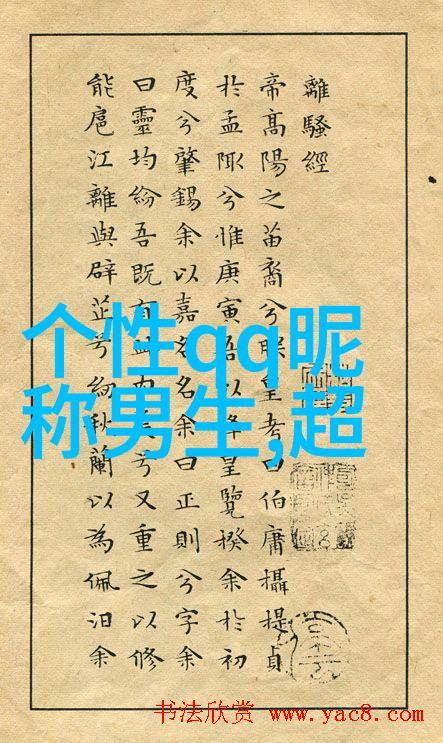 離騷經
帝高陽之苗裔兮朕皇考曰伯庸攝提貞
於孟陬兮惟庚寅吾以降皇覽揆余於初
度兮肇錫余以嘉名名余曰正則兮字余
曰靈均紛吾既有此內美兮又重之以修
能扈江離與辟芷兮紉秋蘭以為佩汨余
个性qq昵
称男生,超
书法欣赏 www.yac8.com